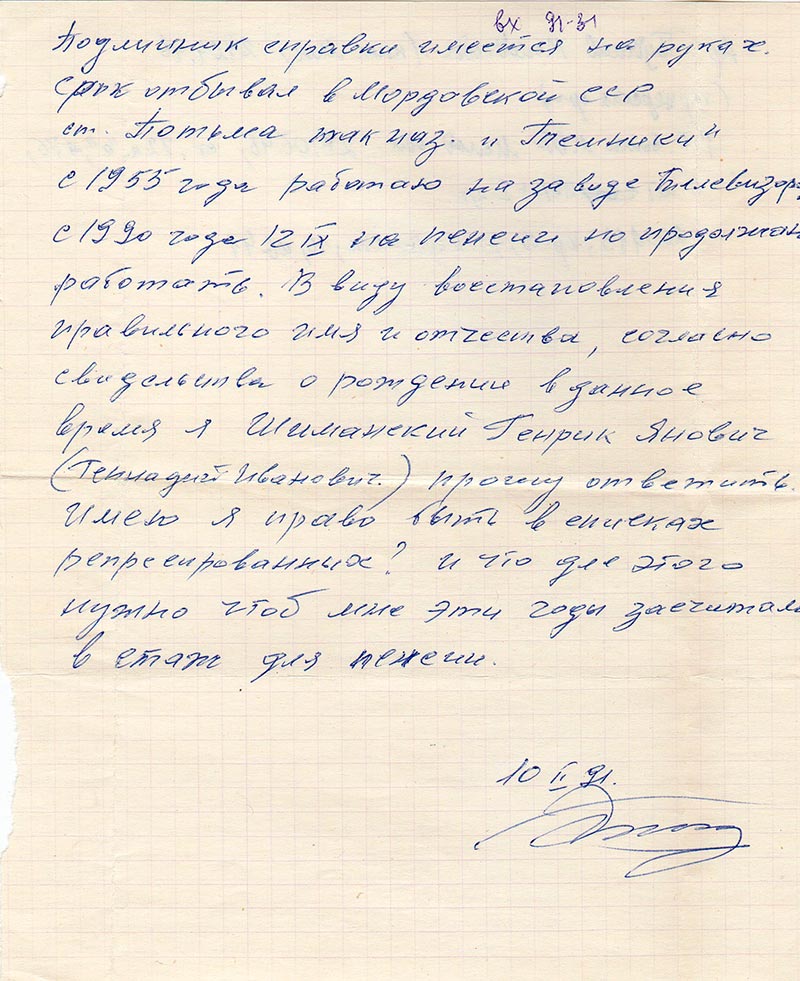 вх 91-31
Подлинник справки имеется на руках.
Срок отбывал в Мордовской ССР
ст. Потьма так наз и Темники"
с 1955 года работаю на заводе Телевизор,
с 1990 года 12 IX на пенсии но продолжаю
работать. В виду восстановления
правильного имя и отчества, согласно
свидельства о рождении в данное
время я Шиманский Генрик Янович
(Геннадий Иванович.) прошу ответить.
Имею я право быть в списках
репрессированных? и что для этого
нужно чтоб мне эти годы засчитали
в стаж для пенсии.
10 II 91.